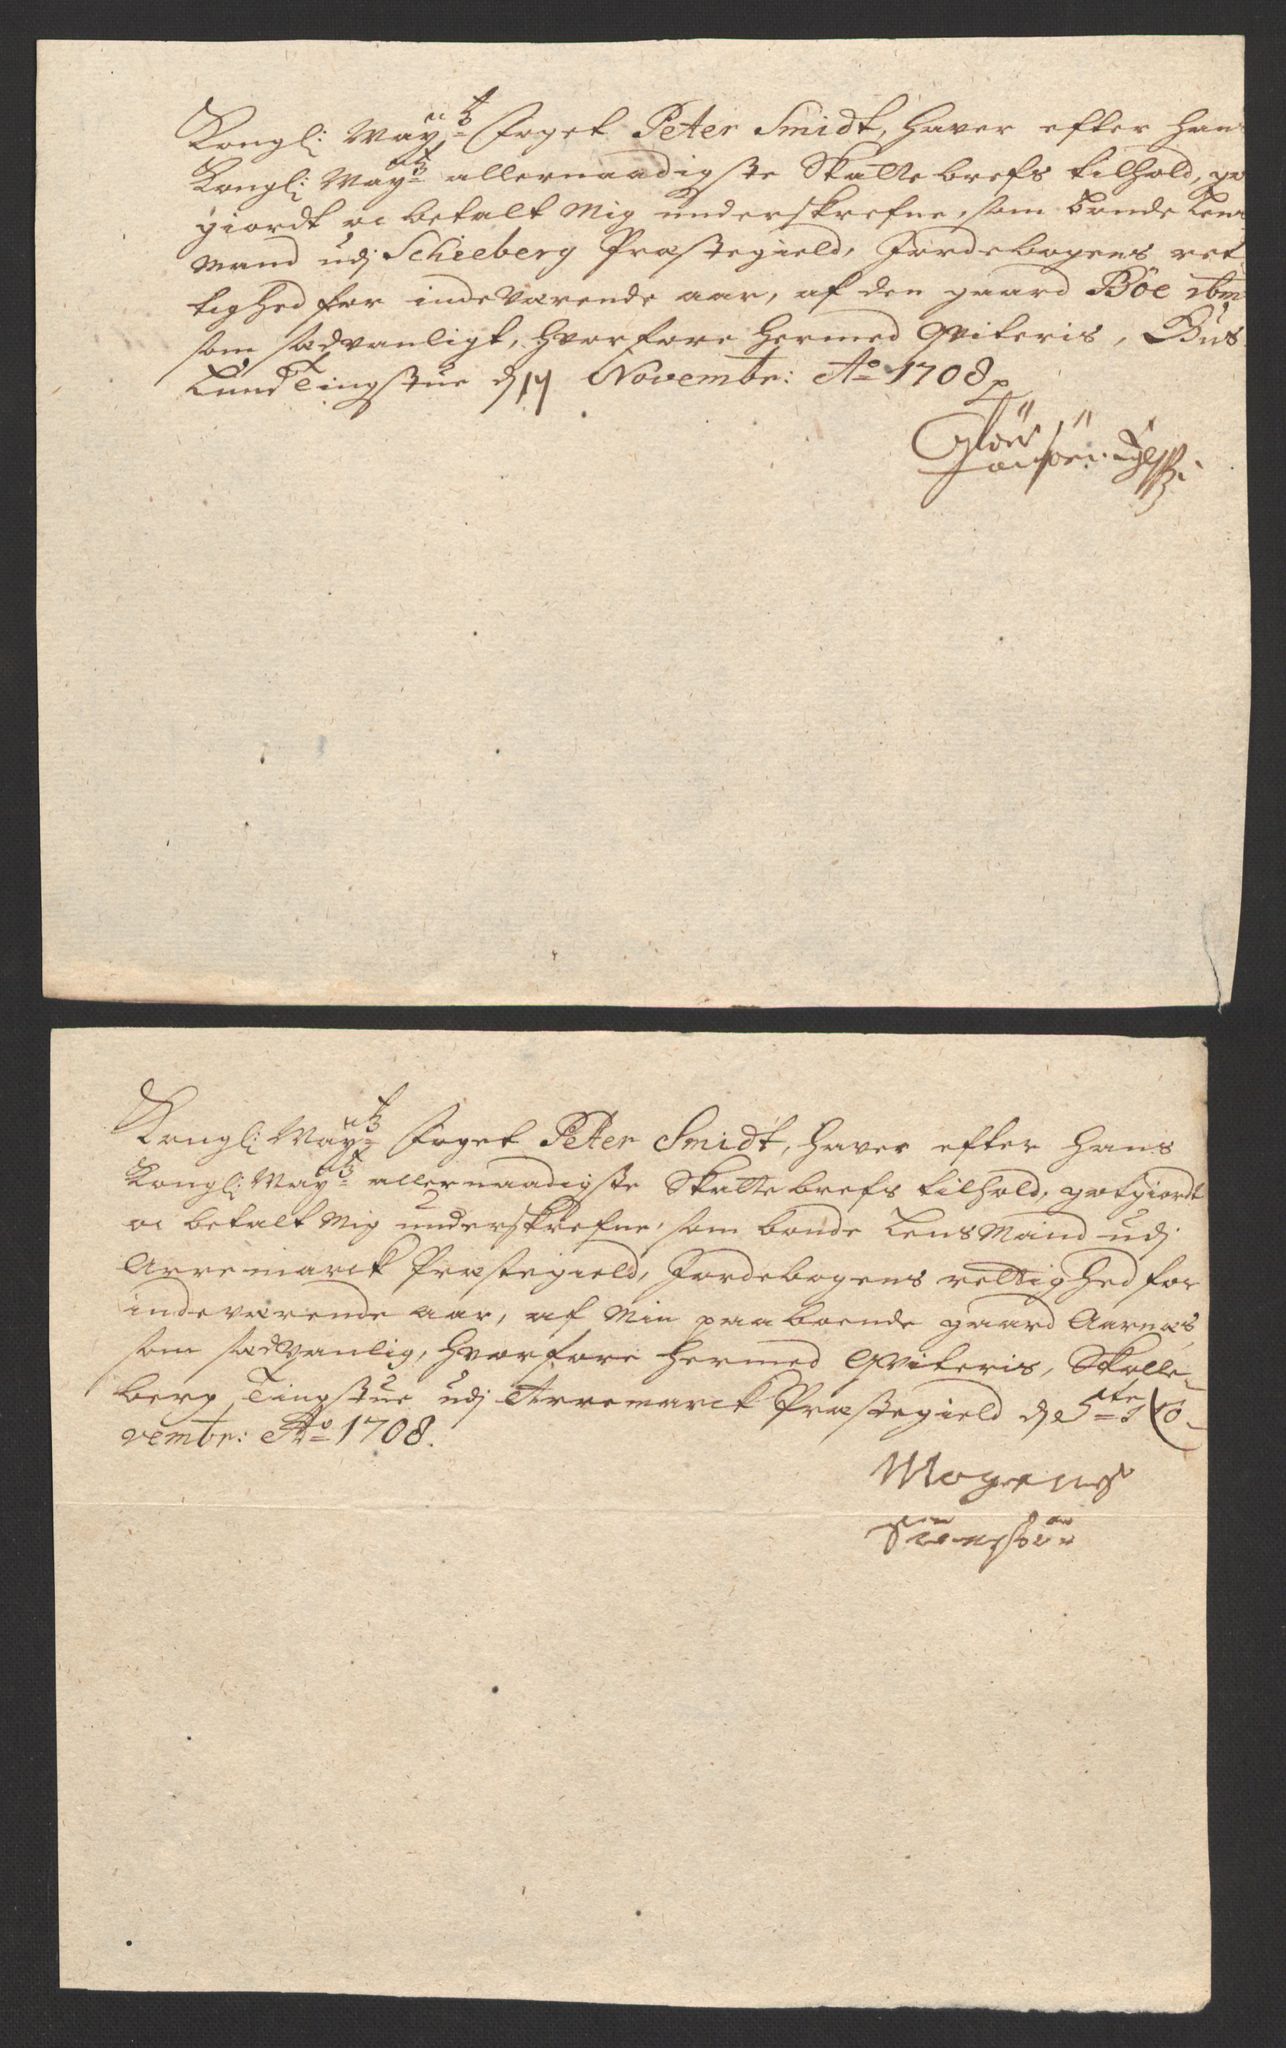 Kongl: May:tz foget Peter Smidt, haver efter Hans
Kongl: May:tz allernaadigste Skattebrefs tilhold, got
giordt oc betalt Mig underskrefne, som bonde Lens
Mand udj Schieberg Præstegield, Jordebogens ret-
tighed for indeværende aar, af den gaard Böe ibm
som sædvanligt, hvorfore hermed qviteris, Bus
Lund Tingstue d Novembr: Ao 1708
Kongl: May:tz foget Peter Smidt, haver efter Hans
Kongl: May:tz allernaadigste Skattebrefs tilhold, gotgiordt
oc betalt Mig underskrefne, som bonde LensMand udj
Arremarck Præstegield, Jordebogens rettighed for
indeværende aar, af Min paaboende gaard Aarnæs
som sædvanlig, hvorfore hermed qviteris, Skolle-
berg Tingstue udj Arremarck Præstegield d 5te No-
vembr: Ao 1708.
Mogens
Suensön